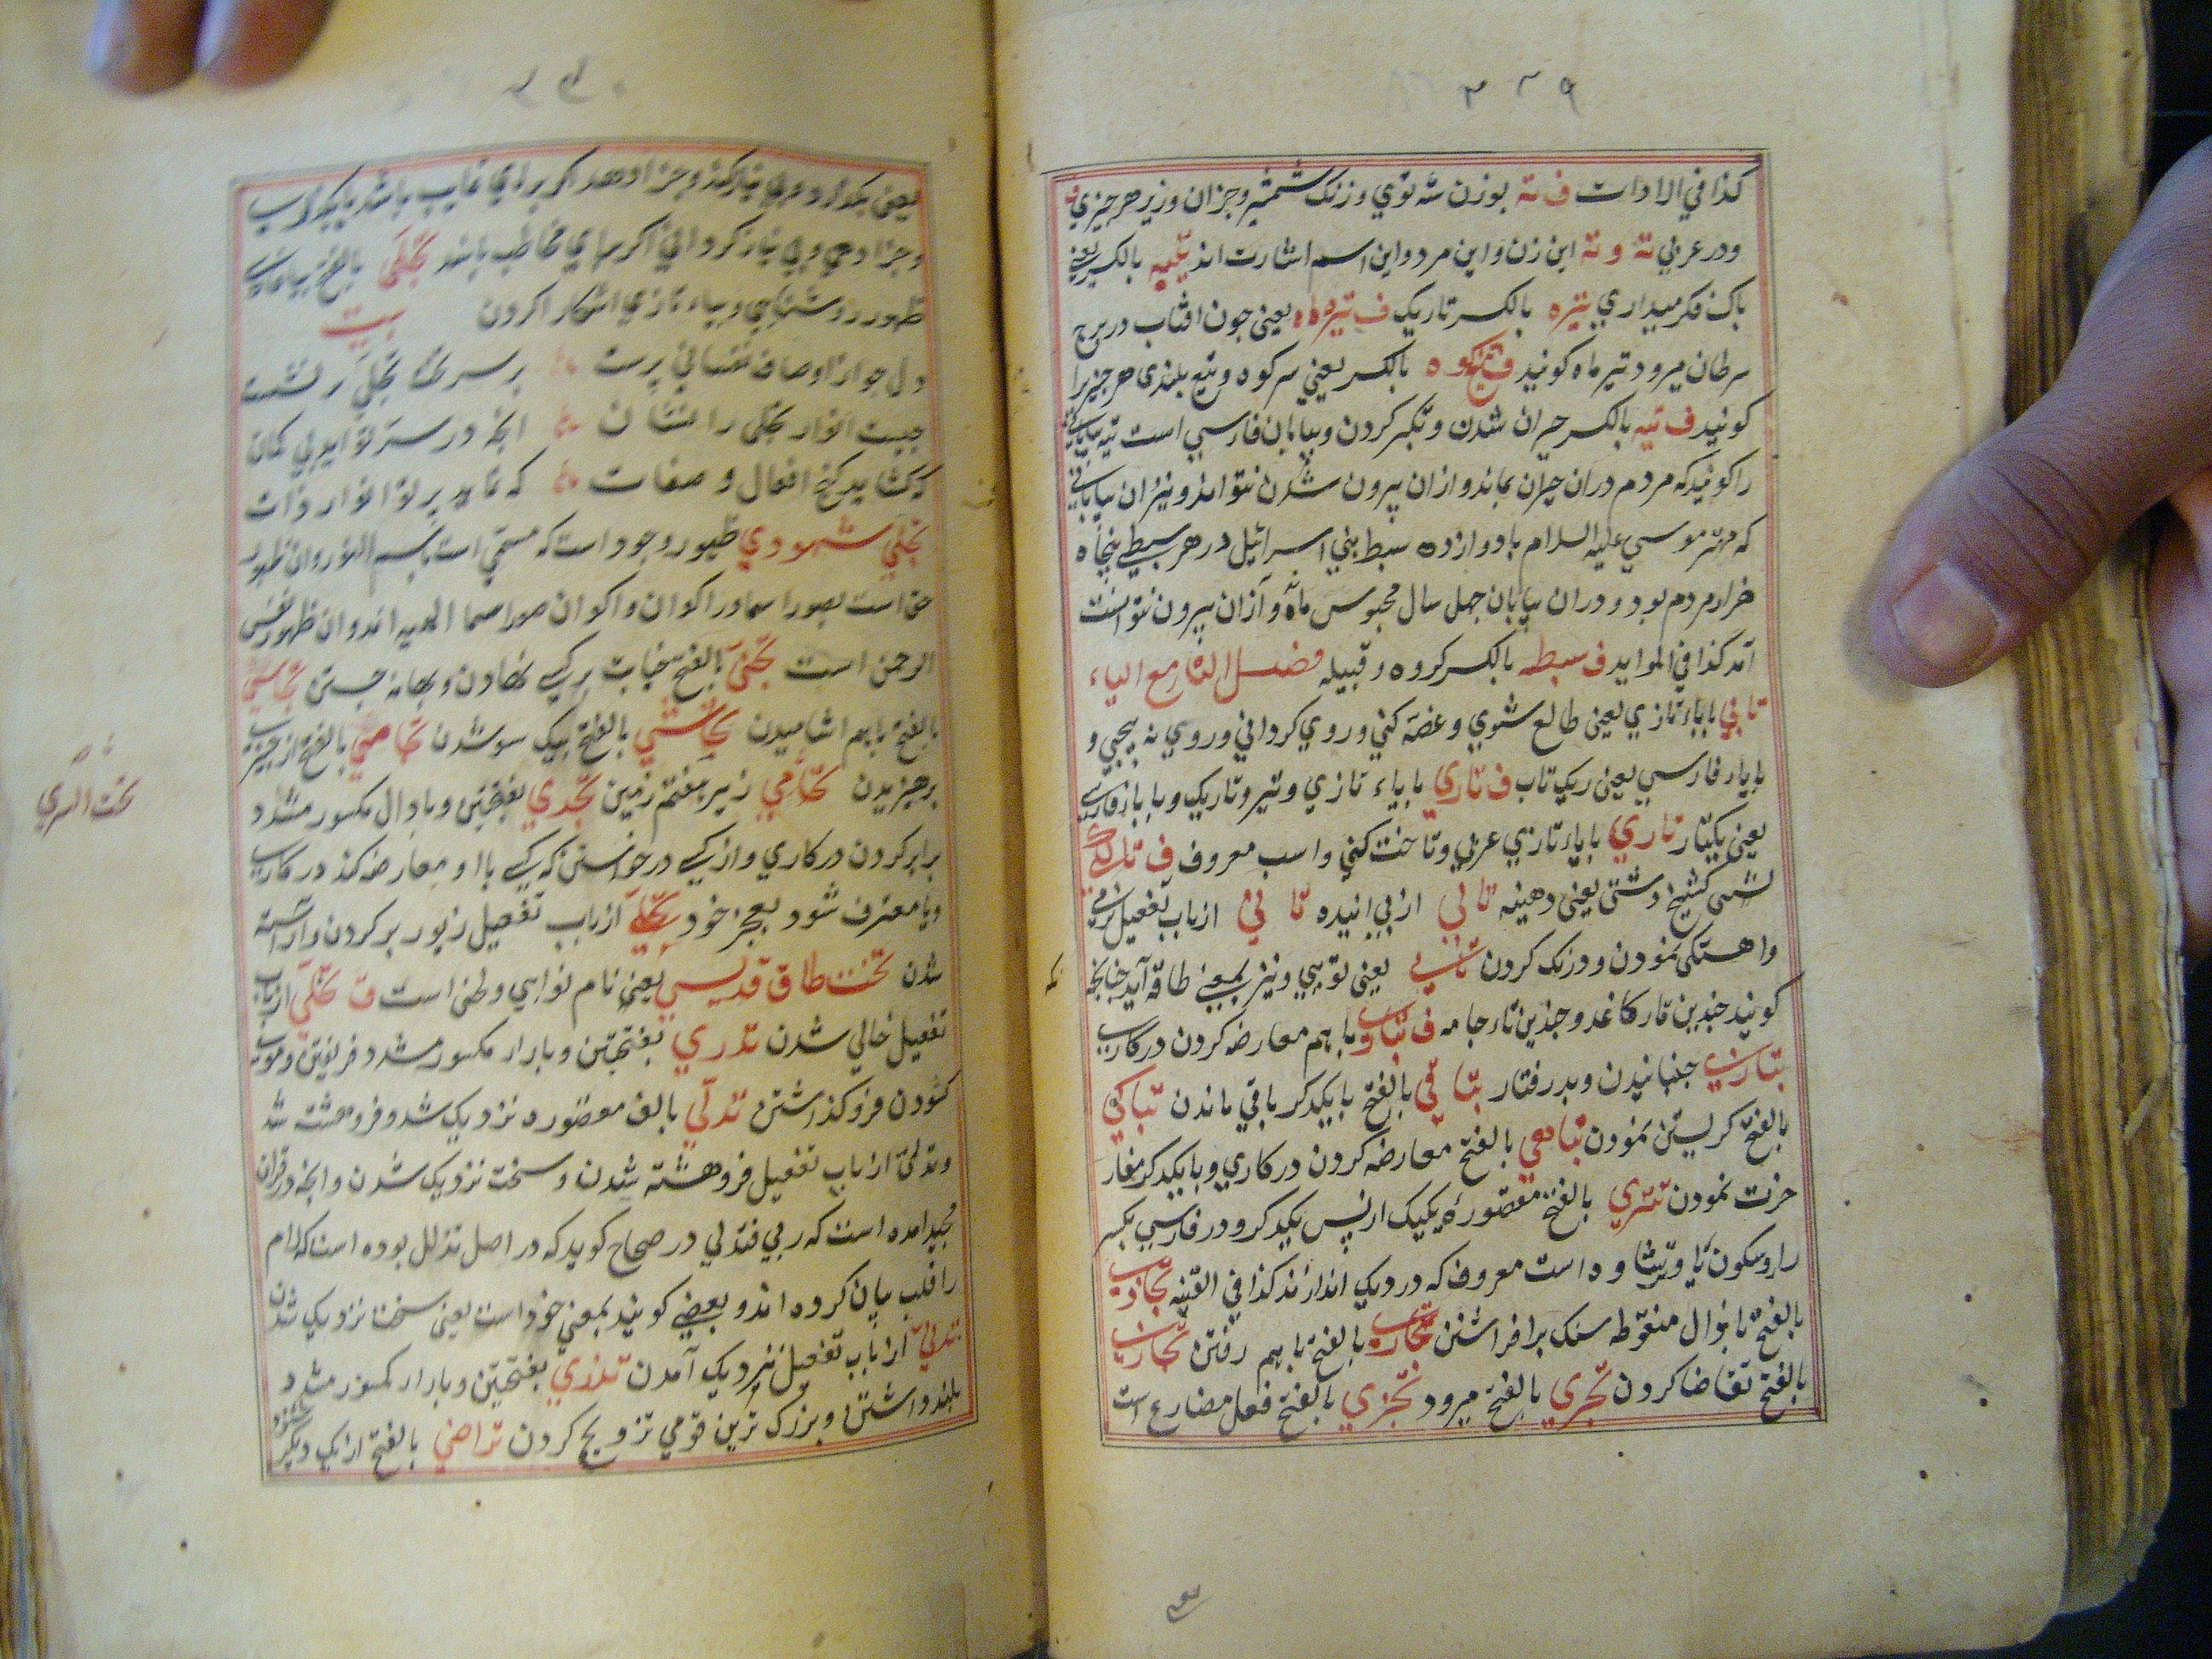 ۳۲۹
کذا فی الادات ف ته بوزن شه توی و زنک شمشیر و جزان و زیر هر چیزی
و در عربی ته و ته این زن و این مرد و این اسم اشارت اند بالکسر یعنی
باک فکر میداری تیره بالکسر تاریک ف تیره ماه یعنی جون افتاب در برج
سرطان میرود تیر ماه کویند ف تیغ کوه بالکسر یعنی سر کوه و تیغ بلندی هر چیز را
کویند ف تیه بالکسر حیران شدن و تکبر کردن و بیابان فارسی است تیه بیابانی
را کویند که مردم دران حیران بماند و ازان بیرون شدن نتواند و نیز ان بیابانی
که مهتر موسی علیه السلام با دوازده سبط بنی اسرائیل در هر سبطی پنجاه
هزار مردم بود و دران بیابان جهل سال محبوس ماند و ازان بیرون نتوانست
آمد کذا فی الموائد ف سبطه بالکسر کروه و قبیله فصل التا مع الیاء
تابی با باء تازی یعنی طالع شوی و غصه کنی و روی کردانی و روی نه پیچی و
با یاء فارسی یعنی ریک تاب ف تاری با یاء تازی و تیر و تاریک و با یاء فارسی
یعنی یکتار تازی با یاء تازی عربی و تاخت کنی و اسب معروف ف
یعنی دهینه تا نی از پی اینده تا نی از باب تفعیل نرمی
و اهستکی نمودن و درنک کردن یعنی توبی و نیز بمعنی طاقه آید چنانچه
کویند چندین تار کاغذ و چندین تار جامه ف تباری با هم معارضه کردن در کاری
جنبانیدن و بد رفتار تباقی بالفتح با یکدکر باقی ماندن تباکی
بالفتح کریستن نمودن تباهی بالفتح معارضه کردن در کاری و با یکدکر مفا
خرت نمودن تتری بالفتح مقصوره یکیک از پس یکدکر و در فارسی بکسر
را و سکون است معروف که در دیک اندازند کذا فی القنیه تجاذی
بالفتح با ذال منقوطه سنک بر افراشتن تجاری بالفتح با هم رفتن تجازی
بالفتح تقاضا کردن تجری بالفتح میرود تجزی بالفتح فعل مضارع است
۳۳۰
یعنی و بی نیاز کند و جزا دهد اکر برای غایب باشد
و جزا دهی و بی نیاز کردانی اکر برای مخاطب باشد تجلی بالفتح
ظهور روشنایی و بیاء تازی اشکارا کردن بیت
دل جو از اوصاف نفسانی برست بر سر تخت تجلی بر نشست
جیست انوار تجلی را نشان انچه در سر تو اید بی کمان
که کشاید کنج افعال و صفات که نماید بر تو انوار ذات
تجلی شهودی ظهور وجود است که مسمی است باسم النور و ان ظهور
حق است بصور اسما در اکوان و اکوان صور اسما الهیه اند و ان ظهور نفس
الرحمن است تجنی بالفتح بر کسی نهادن و بهانه جستن تحاسی
بالفتح با هم اشامیدن تحاشی بالفتح بیک سو شدن تحامی بالفتح از چیزی
پرهیزیدن زیر هفتم زمین تحدی بفتحتین و با دال مکسور مشدد
برابر کردن در کاری و از کسی درخواستن که کسی با او معارضه کند در کاری
و یا معترف شود بعجز خود تحلی از باب تفعیل زیور بر کردن و آراسته
شدن تخت طاق قدیسی یعنی نام نوایی و لحنی است ف تخلی از باب
تفعیل خالی شدن تدری بفتحتین و با راء مکسور مشدد فریفتن و موی
کشودن فرو کذاشتن تدلی بالف مقصوره نزدیک شد و فرو هشته شد
و تدلی از باب تفعیل فرو هشته شدن و سخت نزدیک شدن و انچه در قران
مجید امده است که دنی فتدلی در صحاح کوید که در اصل تدلل بوده است که لام
را قلب بیان کروه اند و بعضی کویند بمعنی خود است یعنی سخت نزدیک شدن
تدنی از باب تفعیل نزدیک آمدن تذری بفتحتین و با راء مکسور مشدد
بلند داشتن و بزرک ترین قومی تزویج کردن تراضی بالفتح از یک دیکر
تحت السری